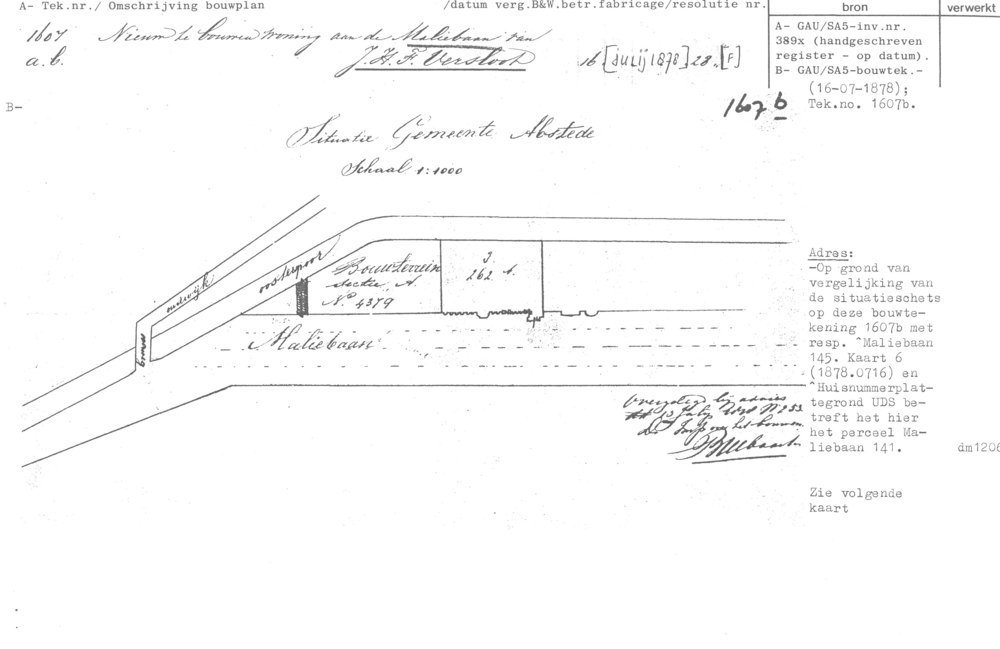 A- Tek.nr./ Omschrijving bouwplan /datum verg.B&W.betr.fabricage/resolutie nr. bron verwerkt
1607 Nieuw te bouwen woning aan de Maliebaan van
a.b. J.H.F. Versloot 16 [Julij 1878] 28. [F]
A- GAU/SA5-inv.nr.
389x (handgeschreven
register - op datum).
B- GAU/SA5-bouwtek.-
(16-07-1878);
Tek.no. 1607b.
B-
1607 b
Situatie Gemeente Abstede
Schaal 1:1000
oudwijk
oosterspoor
Bouwterrein
sectie A.
No 4379
262 A.
Maliebaan
Adres:
-Op grond van
vergelijking van
de situatieschets
op deze bouwte-
kening 1607b met
resp. ^Maliebaan
145. Kaart 6
(1878.0716) en
^Huisnummerplat-
tegrond UDS be-
treft het hier
het perceel Ma-
liebaan 141.
dm1206
Zie volgende
kaart
Overgelegd bij advies